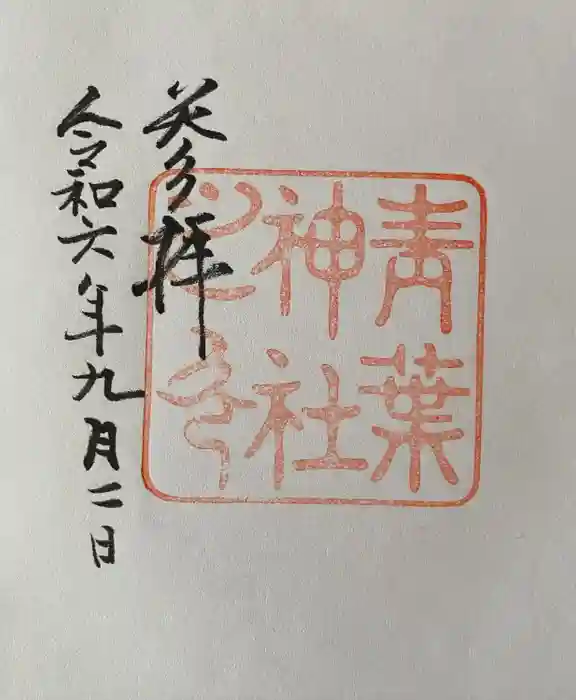 青葉
神社
之印
参拝
令和六年九月二日